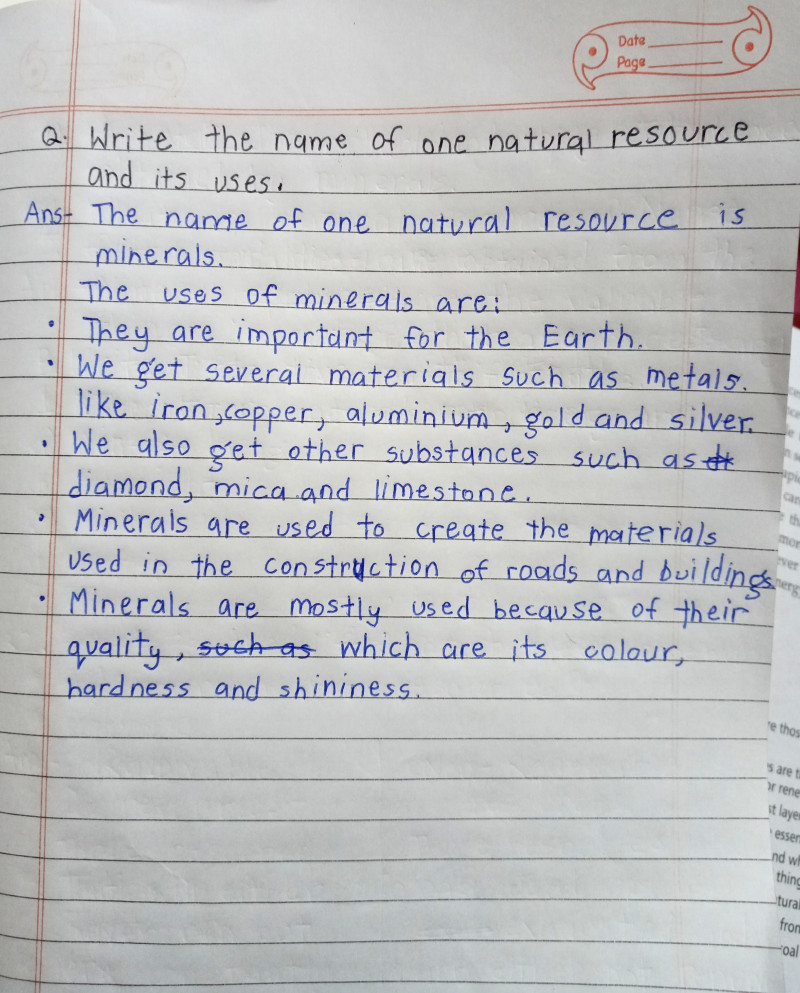 Date
Page
Q. Write the name of one natural resource
and its uses.
Ans+ The name of one natural resource is
minerals.
The uses of minerals are:
• They are important for the Earth.
• We get several materials such as metals.
like iron, copper, aluminium, gold and silver.
• We also get other substances such as
diamond, mica.and limestone.
• Minerals are used to create the materials
used in the construction of roads and buildings.
• Minerals are mostly used because of their
quality, such as which are its colour,
hardness and shininess.
re thos
s are t
or rene
st laye
essen
nd wh
thing
tural
from
oal